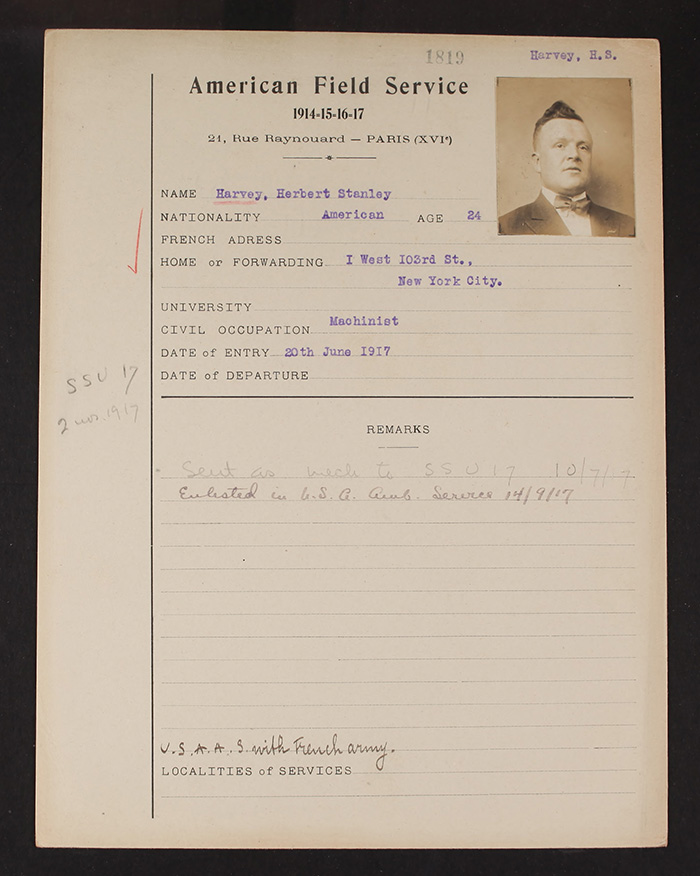 1819
Harvey, H.S.
American Field Service
1914-15-16-17
21, Rue Raynouard — PARIS (XVIe)
NAME Harvey, Herbert Stanley
NATIONALITY American AGE 24
FRENCH ADRESS
HOME or FORWARDING I West I03rd St.,
New York City.
UNIVERSITY
CIVIL OCCUPATION Machinist
DATE of ENTRY 20th June 1917
DATE of DEPARTURE
SSU 17
2 nov. 1917
REMARKS
Sent as mech to SSU 17 10/7/17
Enlisted in U.S.A. Amb. Service 14/9/17
U.S.A.A.S. with French army.
LOCALITIES of SERVICES